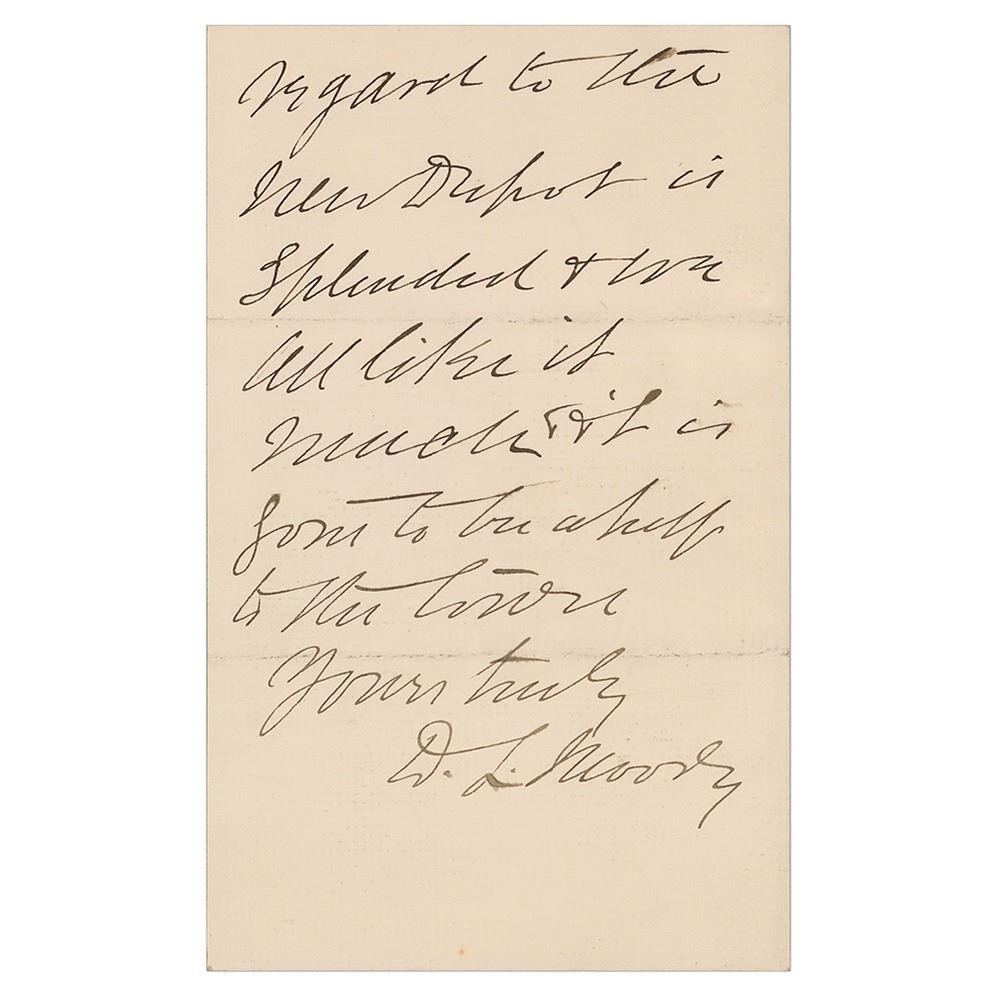 regard to the
New Depot is
Splended & we
All like it
much & it is
gone to be a help
to the town
Yours truly
D. L. Moody